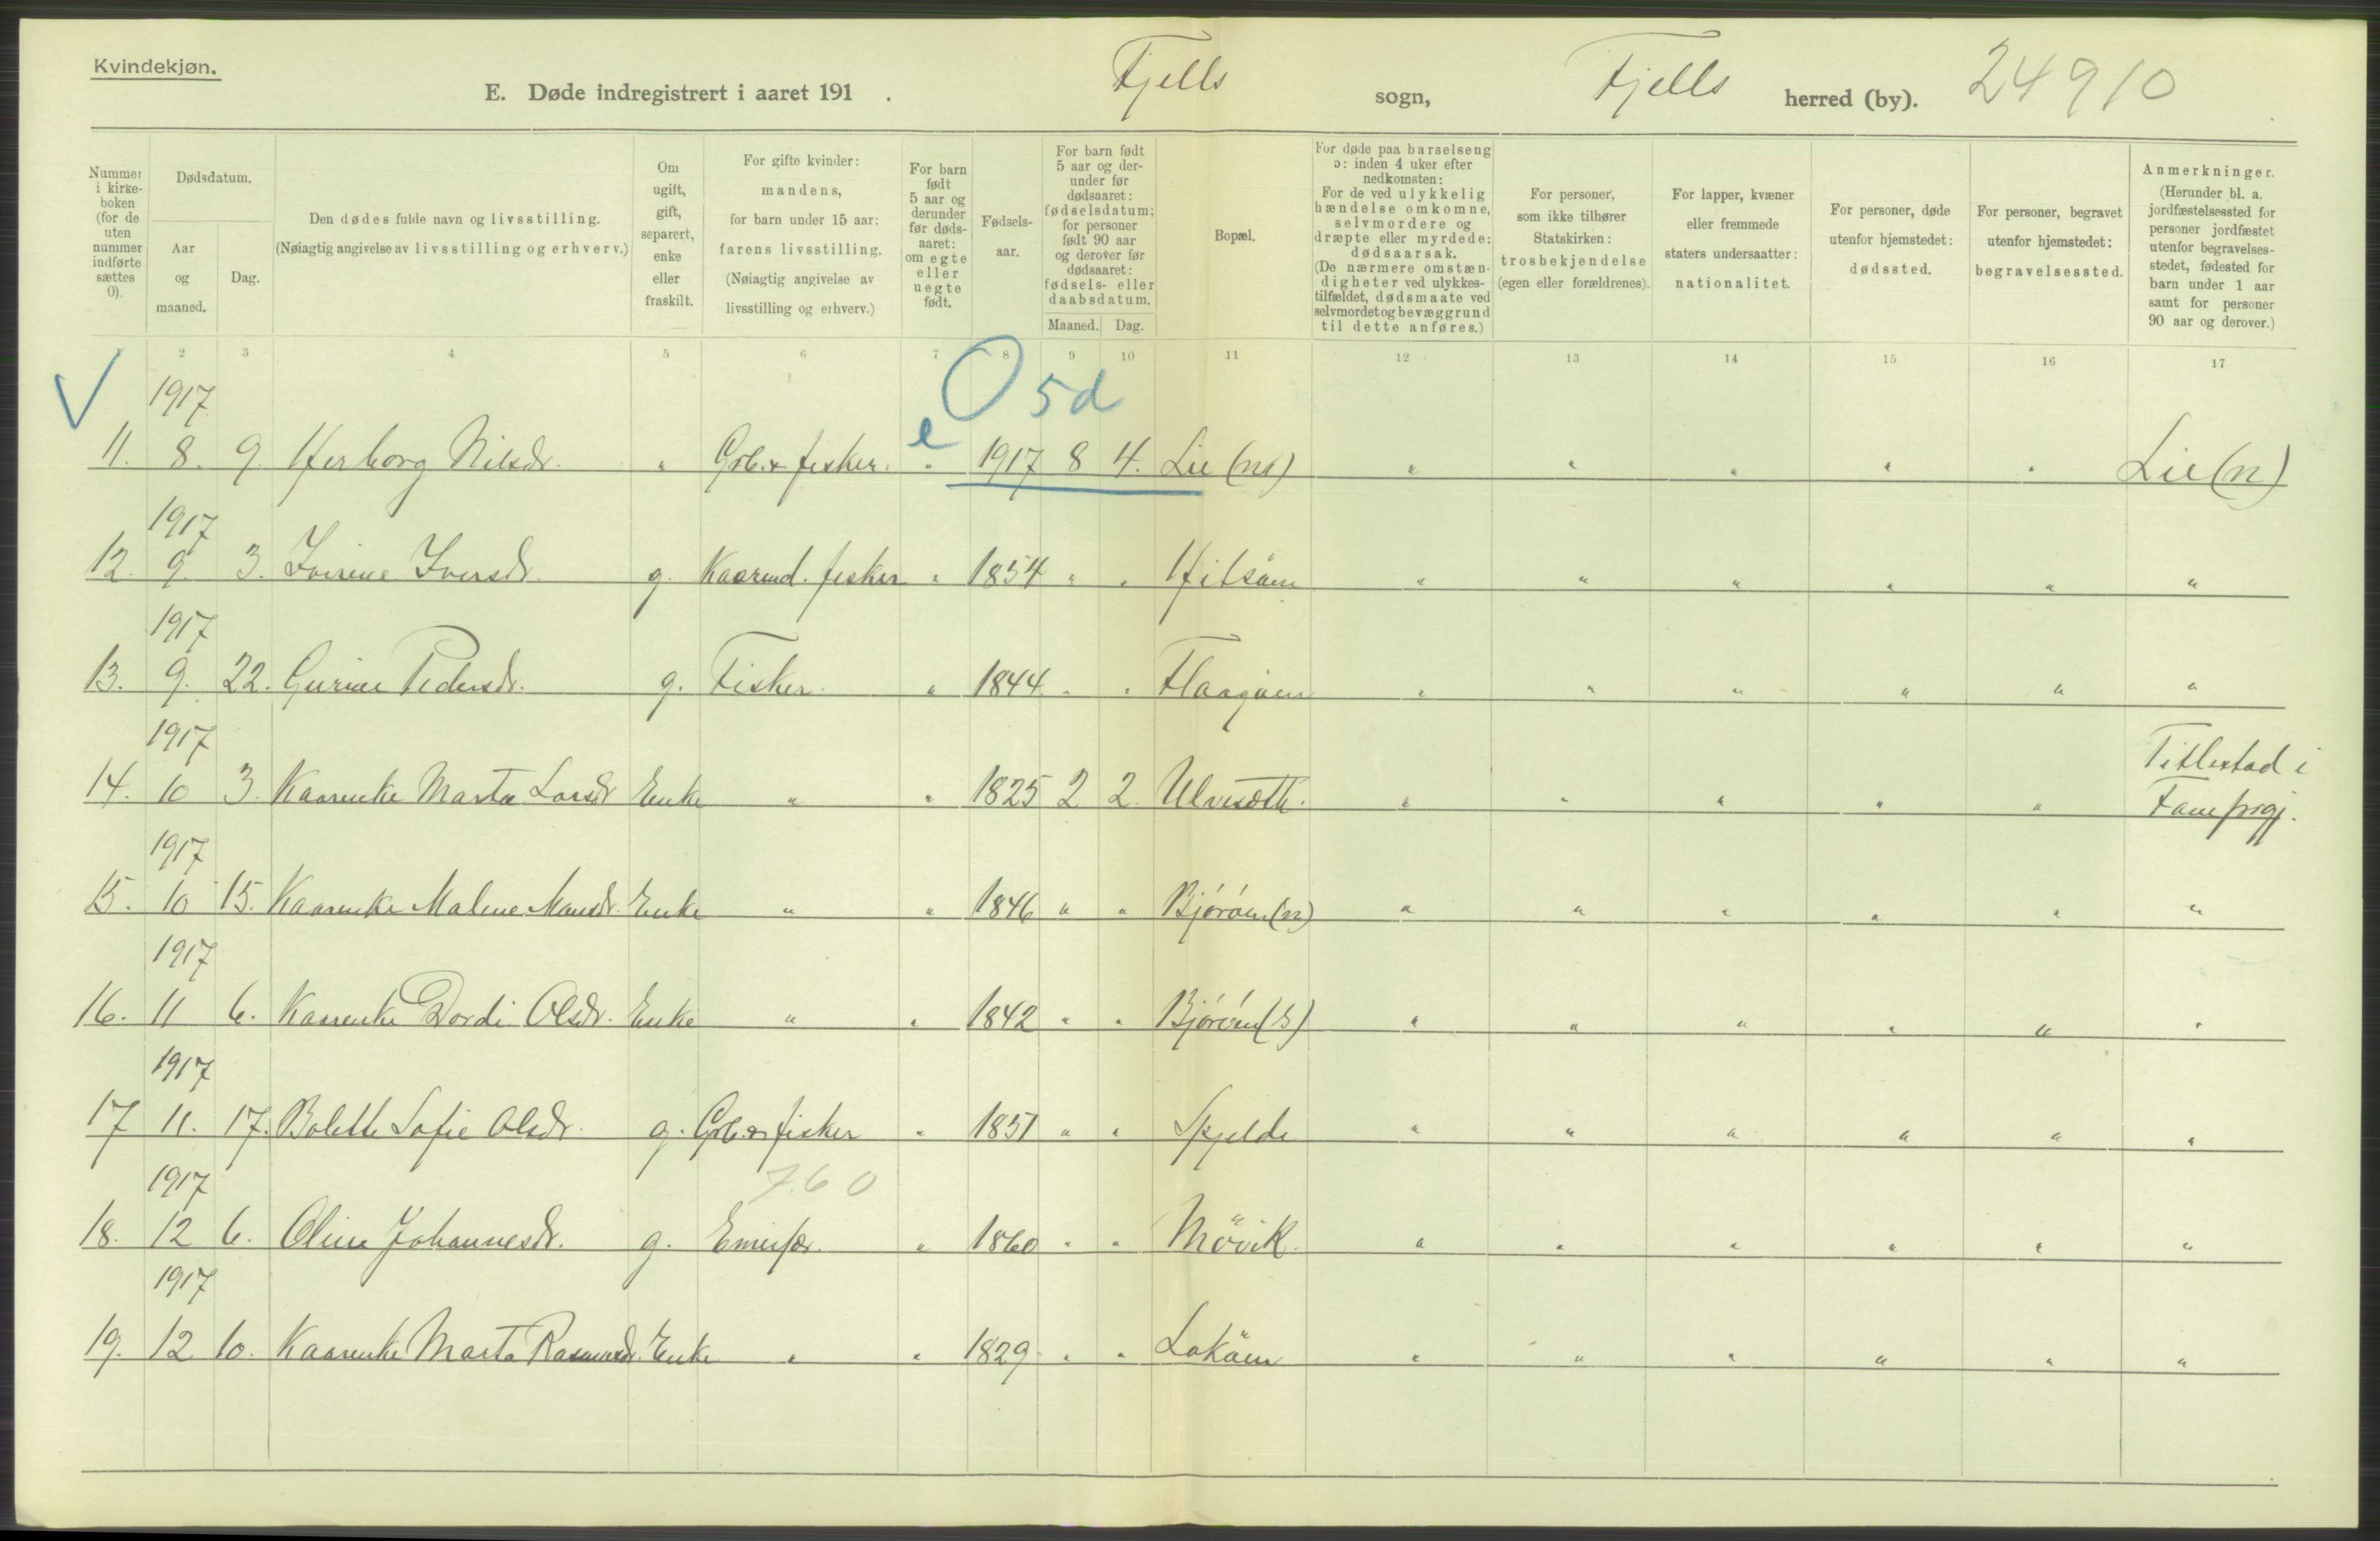 Kvindekjøn.
E. Døde indregistrert i aaret 191 . Fjells sogn, Fjells herred (by). 24910
Nummer i kirkeboken (for de uten nummer indførte sættes 0).
Dødsdatum.
Aar og maaned.
Dag.
Den dødes fulde navn og livsstilling.
(Nøiagtig angivelse av livsstilling og erhverv.)
Om ugift, gift, separert, enke eller fraskilt.
For gifte kvinder: mandens, for barn under 15 aar: farens livsstilling. (Nøiagtig angivelse av livsstilling og erhverv.)
For barn født 5 aar og derunder før dødsaaret: om egte eller uegte født.
Fødselsaar.
For barn født 5 aar og derunder før dødsaaret: fødselsdatum; for personer født 90 aar og derover før dødsaaret: fødsels- eller daabsdatum.
Maaned. Dag.
Bopæl.
For døde paa barselseng ɔ: inden 4 uker efter nedkomsten: For de ved ulykkelig hændelse omkomne, selvmordere og dræpte eller myrdede: dødsaarsak. (De nærmere omstændigheter ved ulykkestilfældet, dødsmaate ved selvmordet og bevæggrund til dette anføres.)
For personer, som ikke tilhører Statskirken: trosbekjendelse (egen eller forældrenes).
For lapper, kvæner eller fremmede staters undersaatter: nationalitet.
For personer, døde utenfor hjemstedet: dødssted.
For personer, begravet utenfor hjemstedet: begravelsessted.
Anmerkninger. (Herunder bl. a. jordfæstelsessted for personer jordfæstet utenfor begravelsesstedet, fødested for barn under 1 aar samt for personer 90 aar og derover.)
1 2 3 4 5 6 7 8 9 10 11 12 13 14 15 16 17
1917 5d
11. 8. 9. Herborg Nilsdr. " Grb. & fisker. e " 1917 8 4. Lie (n) " " " " " Lie (n)
1917
12. 9. 3. Iverine Iversdr. g. Kaarmd. fisker " 1854 " " Hitsöen " " " " " "
1917
13. 9. 22. Gurine Pedersdr. g. Fisker " 1844 " " Flaagöen " " " " " "
1917 Titlestad i
14. 10 3. Kaarenke Marta Larsdr Enke " " 1825 2 2 Ulvesæth. " " " " " Fane prgj.
1917
15. 10 15. Kaarenke Malene Monsdr. Enke " " 1846 " " Björöen (n) " " " " " "
1917
16. 11 6. Kaarenke Dordi Olsdr. Enke " " 1842 " " Björöen (s) " " " " " "
1917
17 11. 17. Bolette Sofie Olsdr. g. Grb. & fisker " 1851 " " Skjelde " " " " " "
1917 760
18. 12 6. Oline Johannesdr. g. " 1860 " " Mövik " " " " " "
1917
19. 12 10. Kaarenke Marta Rasmusdr. Enke " " 1829 " " Loköen " " " " " "